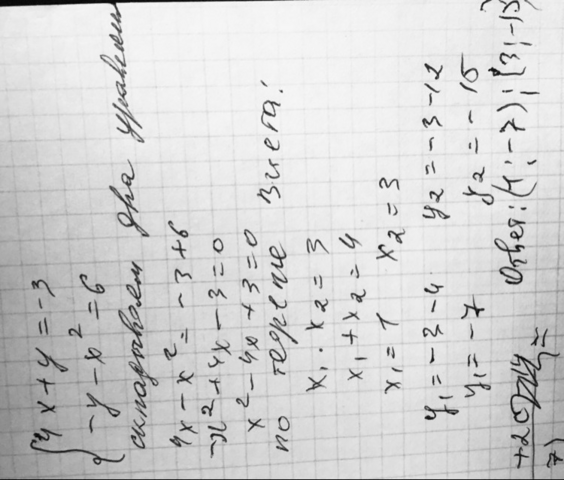 4x+y=-3
-y-x²=6
складываем два уравнения
4x-x²=-3+6
-x²+4x-3=0
x²-4x+3=0
по теореме Виета:
x₁·x₂=3
x₁+x₂=4
x₁=1 x₂=3
y₁=-3-4 y₂=-3-12
y₁=-7 y₂=-15
Ответ: (1;-7);(3;-15)
7)